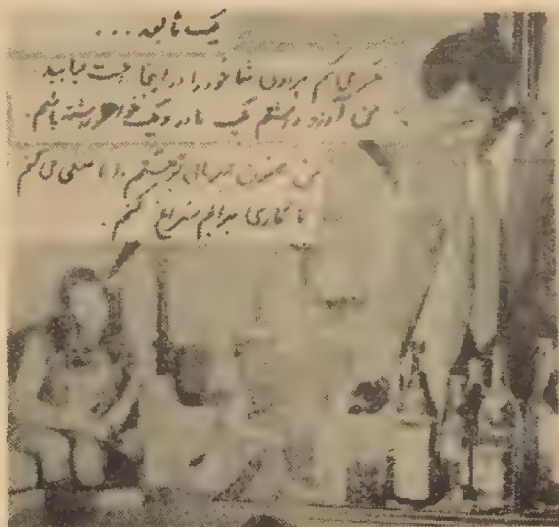 یک ثانیه ...
فکر می کنم مردن شما خود را در اینجا
من آرزو داشتم یک مادر و یک خواهر داشته باشم.
من ممنون مهربانی تو هستم. اما سعی می کنم
تا کاری برایم سراغ کنم.